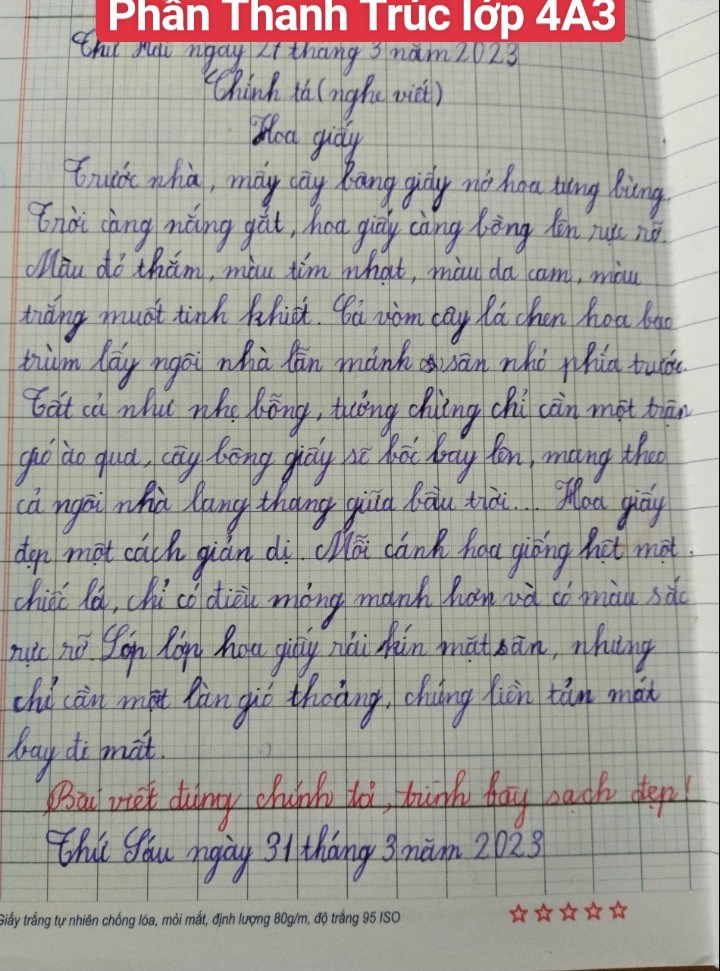 Phan Thanh Trúc lớp 4A3
Thứ Hai ngày 27 tháng 3 năm 2023
Chính tả (nghe viết)
Hoa giấy
Trước nhà, mấy cây bông giấy nở hoa tưng bừng.
Trời càng nắng gắt, hoa giấy càng bồng lên rực rỡ.
Màu đỏ thắm, màu tím nhạt, màu da cam, màu
trắng muốt tinh khiết. Cả vòm cây lá chen hoa bao
trùm lấy ngôi nhà lẫn mảnh sân nhỏ phía trước.
Tất cả như nhẹ bỗng, tưởng chừng chỉ cần một trận
gió ào qua, cây bông giấy sẽ bốc bay lên, mang theo
cả ngôi nhà lang thang giữa bầu trời... Hoa giấy
đẹp một cách giản dị. Mỗi cánh hoa giống hệt một
chiếc lá, chỉ có điều mỏng manh hơn và có màu sắc
rực rỡ. Lớp lớp hoa giấy rải kín mặt sân, nhưng
chỉ cần một làn gió thoảng, chúng liền tản mát
bay đi mất.
Bài viết đúng chính tả, trình bày sạch đẹp!
Thứ Sáu ngày 31 tháng 3 năm 2023
Giấy trắng tự nhiên chống lóa, mỏi mắt, định lượng 80g/m, độ trắng 95 ISO